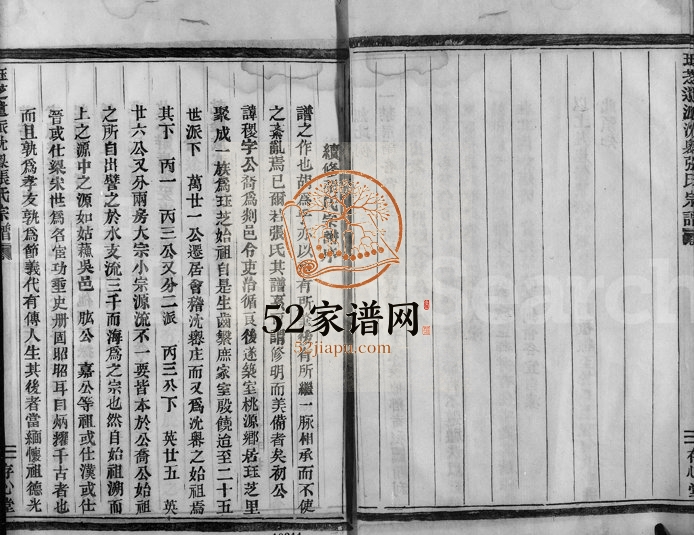 珏芝遷派沈𡒍張氏宗譜
存心堂
續修張氏宗譜序
譜之作也胡為乎亦以有所 後有所繼一脈相承而不使
之紊亂焉已爾 張氏其譜 謂修明而美備者矣初公
諱稷字公喬為剡邑令吏治循良後遂築室桃源鄉居珏芝里
聚成一族為珏芝始祖自是生齒繫庶家室殷饒迨至二十五
世派下 萬廿一公遷居會稽沈𡒍庄而又為沈𡒍之始祖焉
其下 丙一 丙三公又分二派 丙三公下 英廿五 英
廿六公又分兩房大宗小宗源流不一要皆本於公喬公始祖
之所自出譬之於水支流三千而海為之宗也然自始祖溯而
上之源中之源如姑蘓吳邑 肱公 嘉公等祖或仕漢或仕
晉或仕梁宋世為名宦功垂史册固昭昭耳目炳燿千古者也
而且孰為孝友孰為節義代有傳人生其後者當緬懷祖德光
張氏宗譜
存心堂
52家谱网
52jiapu.com